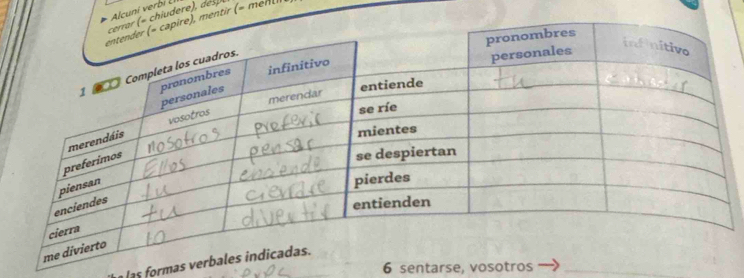 ▶ Alcuni verbi
cerrar (= chiudere),
entender (= capire), mentir (=
1 Completa los cuadros.
pronombres personales infinitivo
merendáis vosotros merendar
preferimos nosotros preferir
piensan Ellos pensar
enciendes tu
cierra
me divierto divertir
pronombres personales infinitivo
entiende tu
se ríe
mientes
se despiertan
pierdes
entienden
las formas verbales indicadas.
6 sentarse, vosotros →